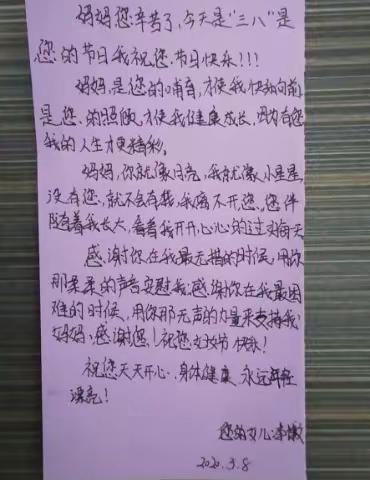 妈妈您辛苦了,今天是"三八"是
您的节日我祝您节日快乐!!!
妈妈,是您的哺育,才使我快和向前
是您的照顾,才使我健康成长,因为有您
我的人生才更精彩。
妈妈,你就像月亮,我就像小星星,
没有您,就不会有我,我离不开您,您伴
随着我长大,看着我开开心心的过每天
感谢你在我最无措的时候,用你
那柔柔的声音安慰我,感谢你在我最困
难的时候,用你那无声的力量来支持我
妈妈,感谢您!祝您女神节快乐!
祝您天天开心,身体健康,永远年轻
漂亮!
您的女儿:李
2020.3.8